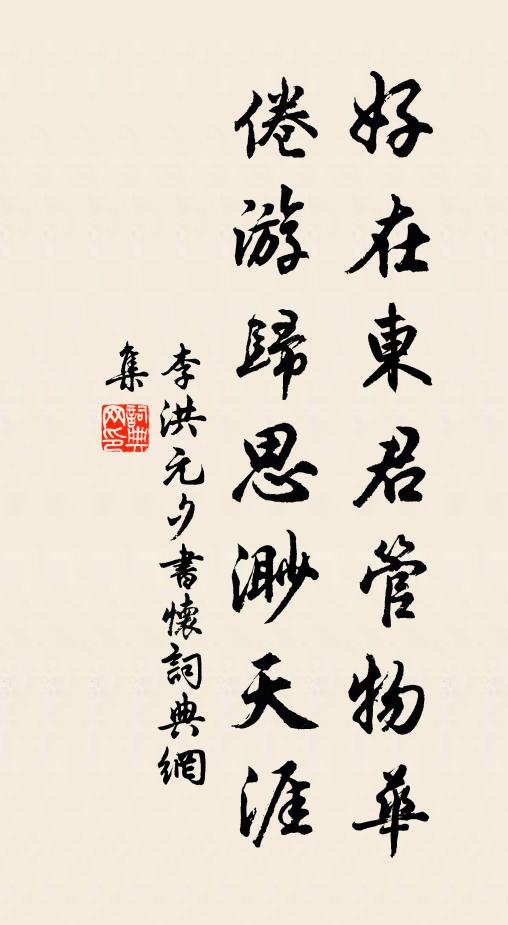 好在東君管物華
倦游歸思渺天涯
李洪元夕書懷詞典網
集
詞典網印